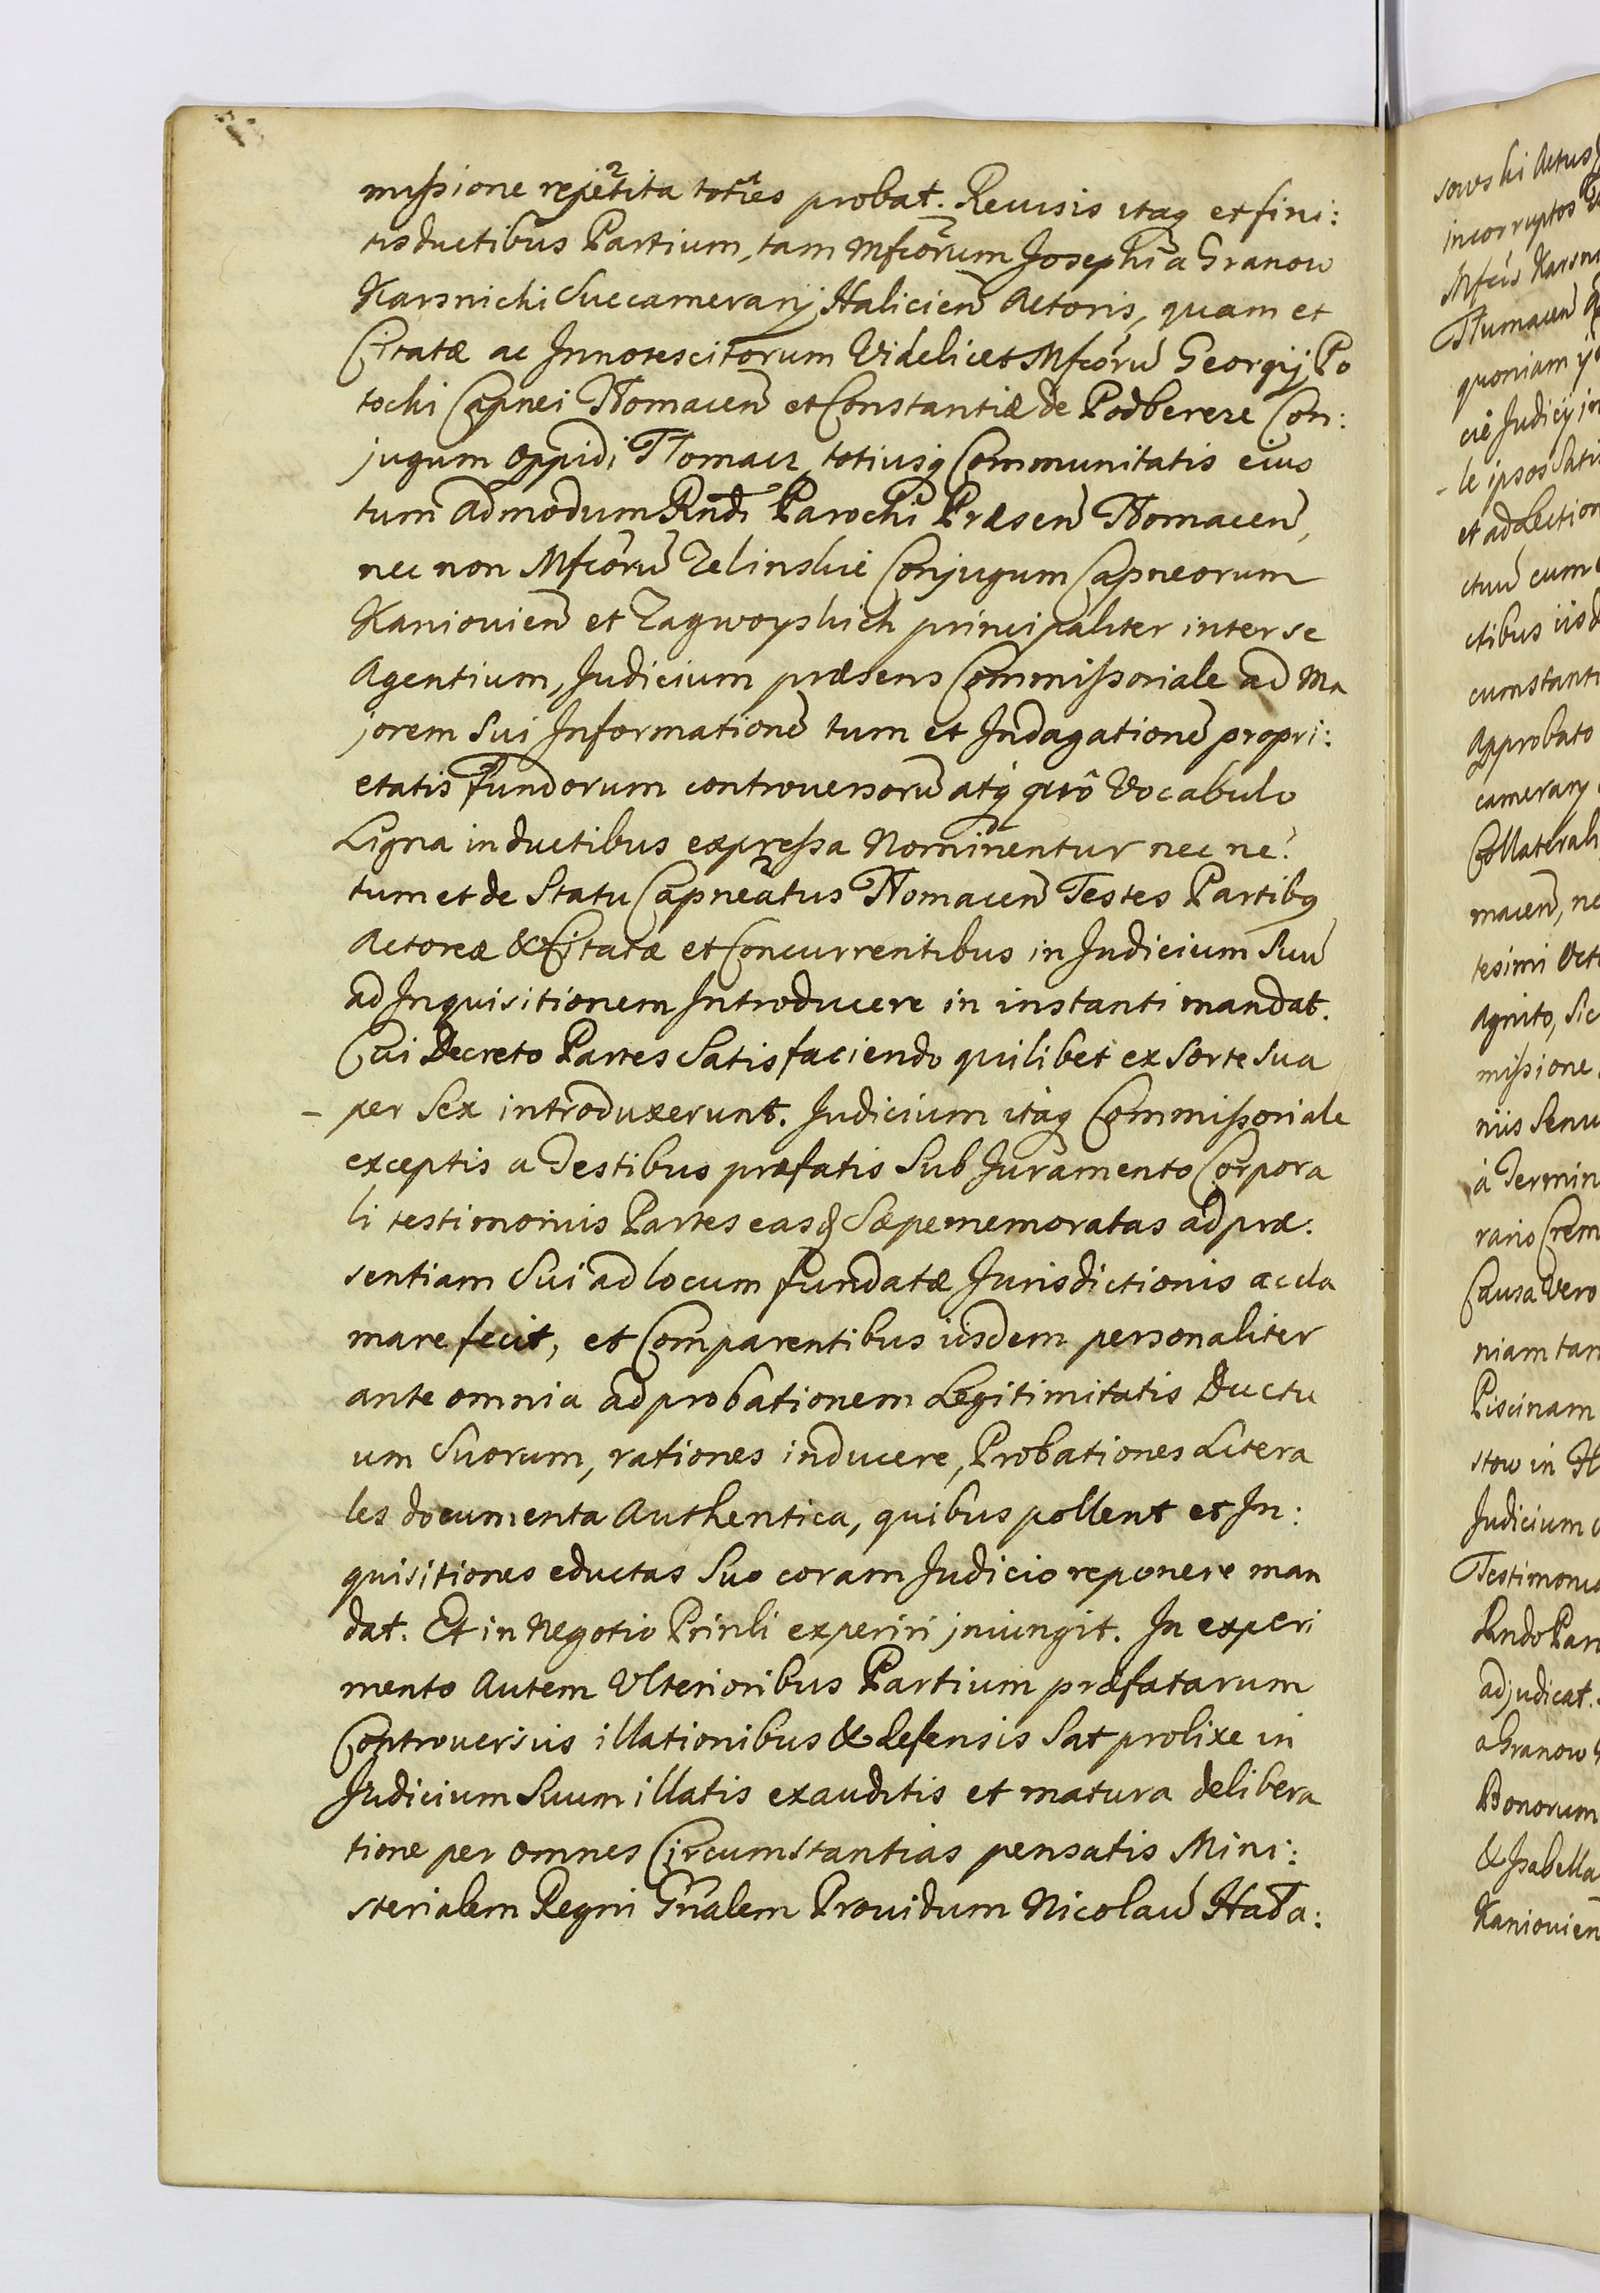 missione repetita toties probat. Revisis itaq et fini:
tis ductibus Partium, tam Mfcorum Josephi a Granow
Karsnicki Succamerarij Halicien Actoris, quam et
Citatæ ac Innotescitorum Videlicet Mfcoru Georgij Po
tocki Capnei Tlomacen et Constantiæ de Podberez Con:
jugum Oppidi Tlomacz, totiusq Communitatis eius
tum Admodum Rndi Parochi Præsen Tlomacen,
nec non Mfcoru Zelinskie Conjugum Capneorum
Kaniovien et Zagwoyskich principaliter inter se
Agentium, Judicium præsens Commissoriale ad Ma
jorem Sui Informatione tum et Indagatione propri:
etatis fundorum controversoru atq quo Vocabulo
Ligna in ductibus expressa Nominentur nec ne?
tum et de Statu Capneatus Tlomacen Testes Partibq
Actoreæ & Citatæ et Concurrentibus in Judicium Suu
ad Inquisitionem Introducere in instanti mandat.
Cui Decreto Partes Satisfaciendo quilibet ex Sorte Sua
– per Sex introduxerunt. Judicium itaq Commissoriale
exceptis a Testibus præfatis Sub Juramento Corpora
li testimoniis Partes easq Sæpememoratas ad præ:
sentiam Sui ad locum fundatæ Jurisdictionis accla
mare fecit, et Comparentibus iisdem personaliter
ante omnia ad probationem Legitimitatis Ductu
um Suorum, rationes inducere, Probationes Litera
les documenta Authentica, quibus pollent et In:
quisitiones eductas Suo coram Judicio reponere man
dat. Et in Negotio Prinli experiri jniungit. In experi
mento Autem Ulterioribus Partium præfatarum
Controversiis illationibus & defensis Sat prolixe in
Judicium Suum illatis exauditis et matura delibera
tione per omnes Circumstantias pensatis Mini:
sterialem Regni Gnalem Providum Nicolau Hada:
sowski Actus
incorruptos
Mfcus Karsni
Tlumacen
quoniam
cie Judicij
– le ipsos Sati
et ad Lection
ctuu cum
ctibus iisd
cumstanti
Approbato
camerarij
Collaterali
macen, ne
tesimi Oct
Agnito, Sic
missione
niis Senu
a Termin
rario Crem
Causa Vero
niam tan
Piscinam
stow in H
Judicium
Testimonio
Rndo Par
adjudicat.
a Granow
Bonorum
& Isabella
Kaniovien